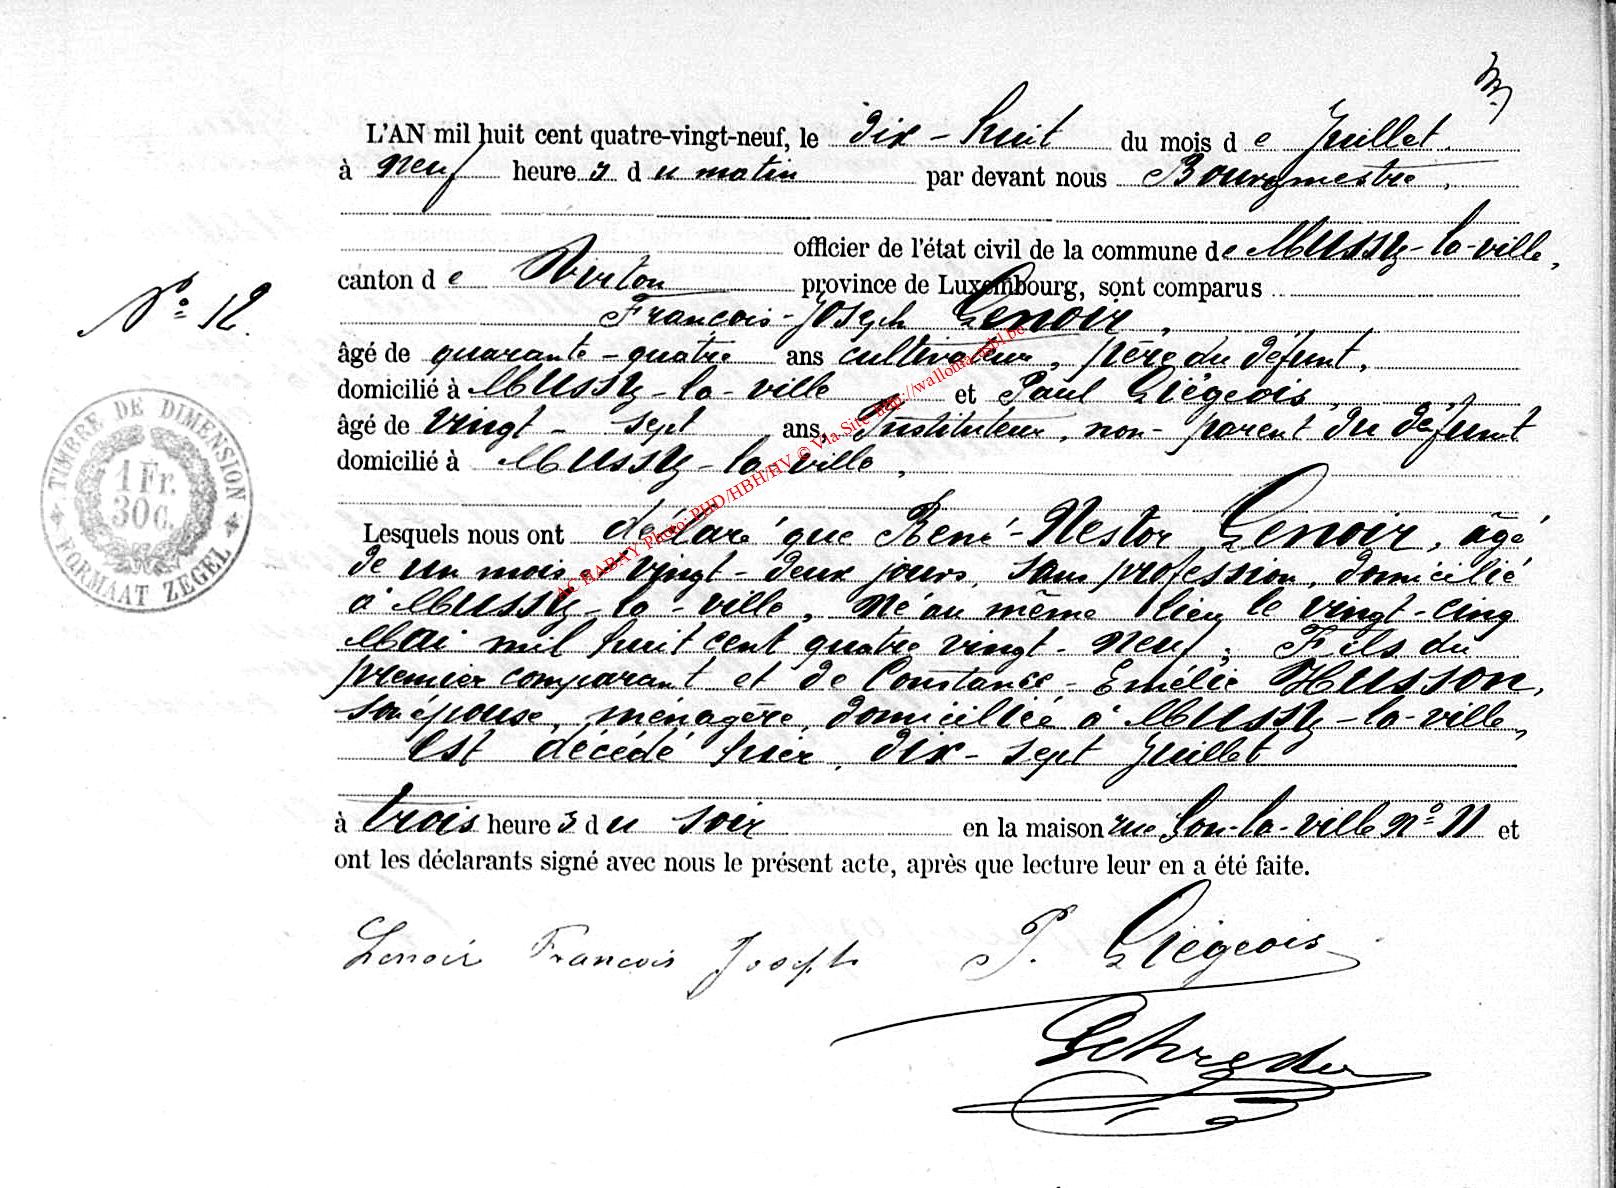 L'AN mil huit cent quatre-vingt-neuf, le dix-huit du mois de Juillet.
à neuf heures du matin par devant nous Bourgmestre,
officier de l'état civil de la commune de Mussy-la-ville,
canton de Virton province de Luxembourg, sont comparus
François-Joseph Lenoir,
âgé de quarante-quatre ans cultivateur, père du défunt,
domicilié à Mussy-la-ville et Paul Liégeois,
âgé de vingt-sept ans, Instituteur, non-parent du défunt
domicilié à Mussy-la-ville,
Lesquels nous ont déclaré que René-Nestor Lenoir, âgé
de un mois vingt-deux jours, sans profession, domicilié
à Mussy-la-ville, Né au même lieu le vingt-cinq
Mai mil huit cent quatre vingt-neuf; Fils du
premier comparant et de Constance-Emélie Husson,
son épouse, ménagère, domiciliée à Mussy-la-ville,
Est décédé hier, dix-sept Juillet
à trois heures du soir en la maison rue -la-ville N° 11 et
ont les déclarants signé avec nous le présent acte, après que lecture leur en a été faite.
Lenoir Francois Joseph P. Liégeois
N° 12.
TIMBRE DE DIMENSION
1 Fr.
30 C.
FORMAAT ZEGEL
AC HABAY Photo: PHD/HBH/HV © Via Site http://wallonia-asbl.be